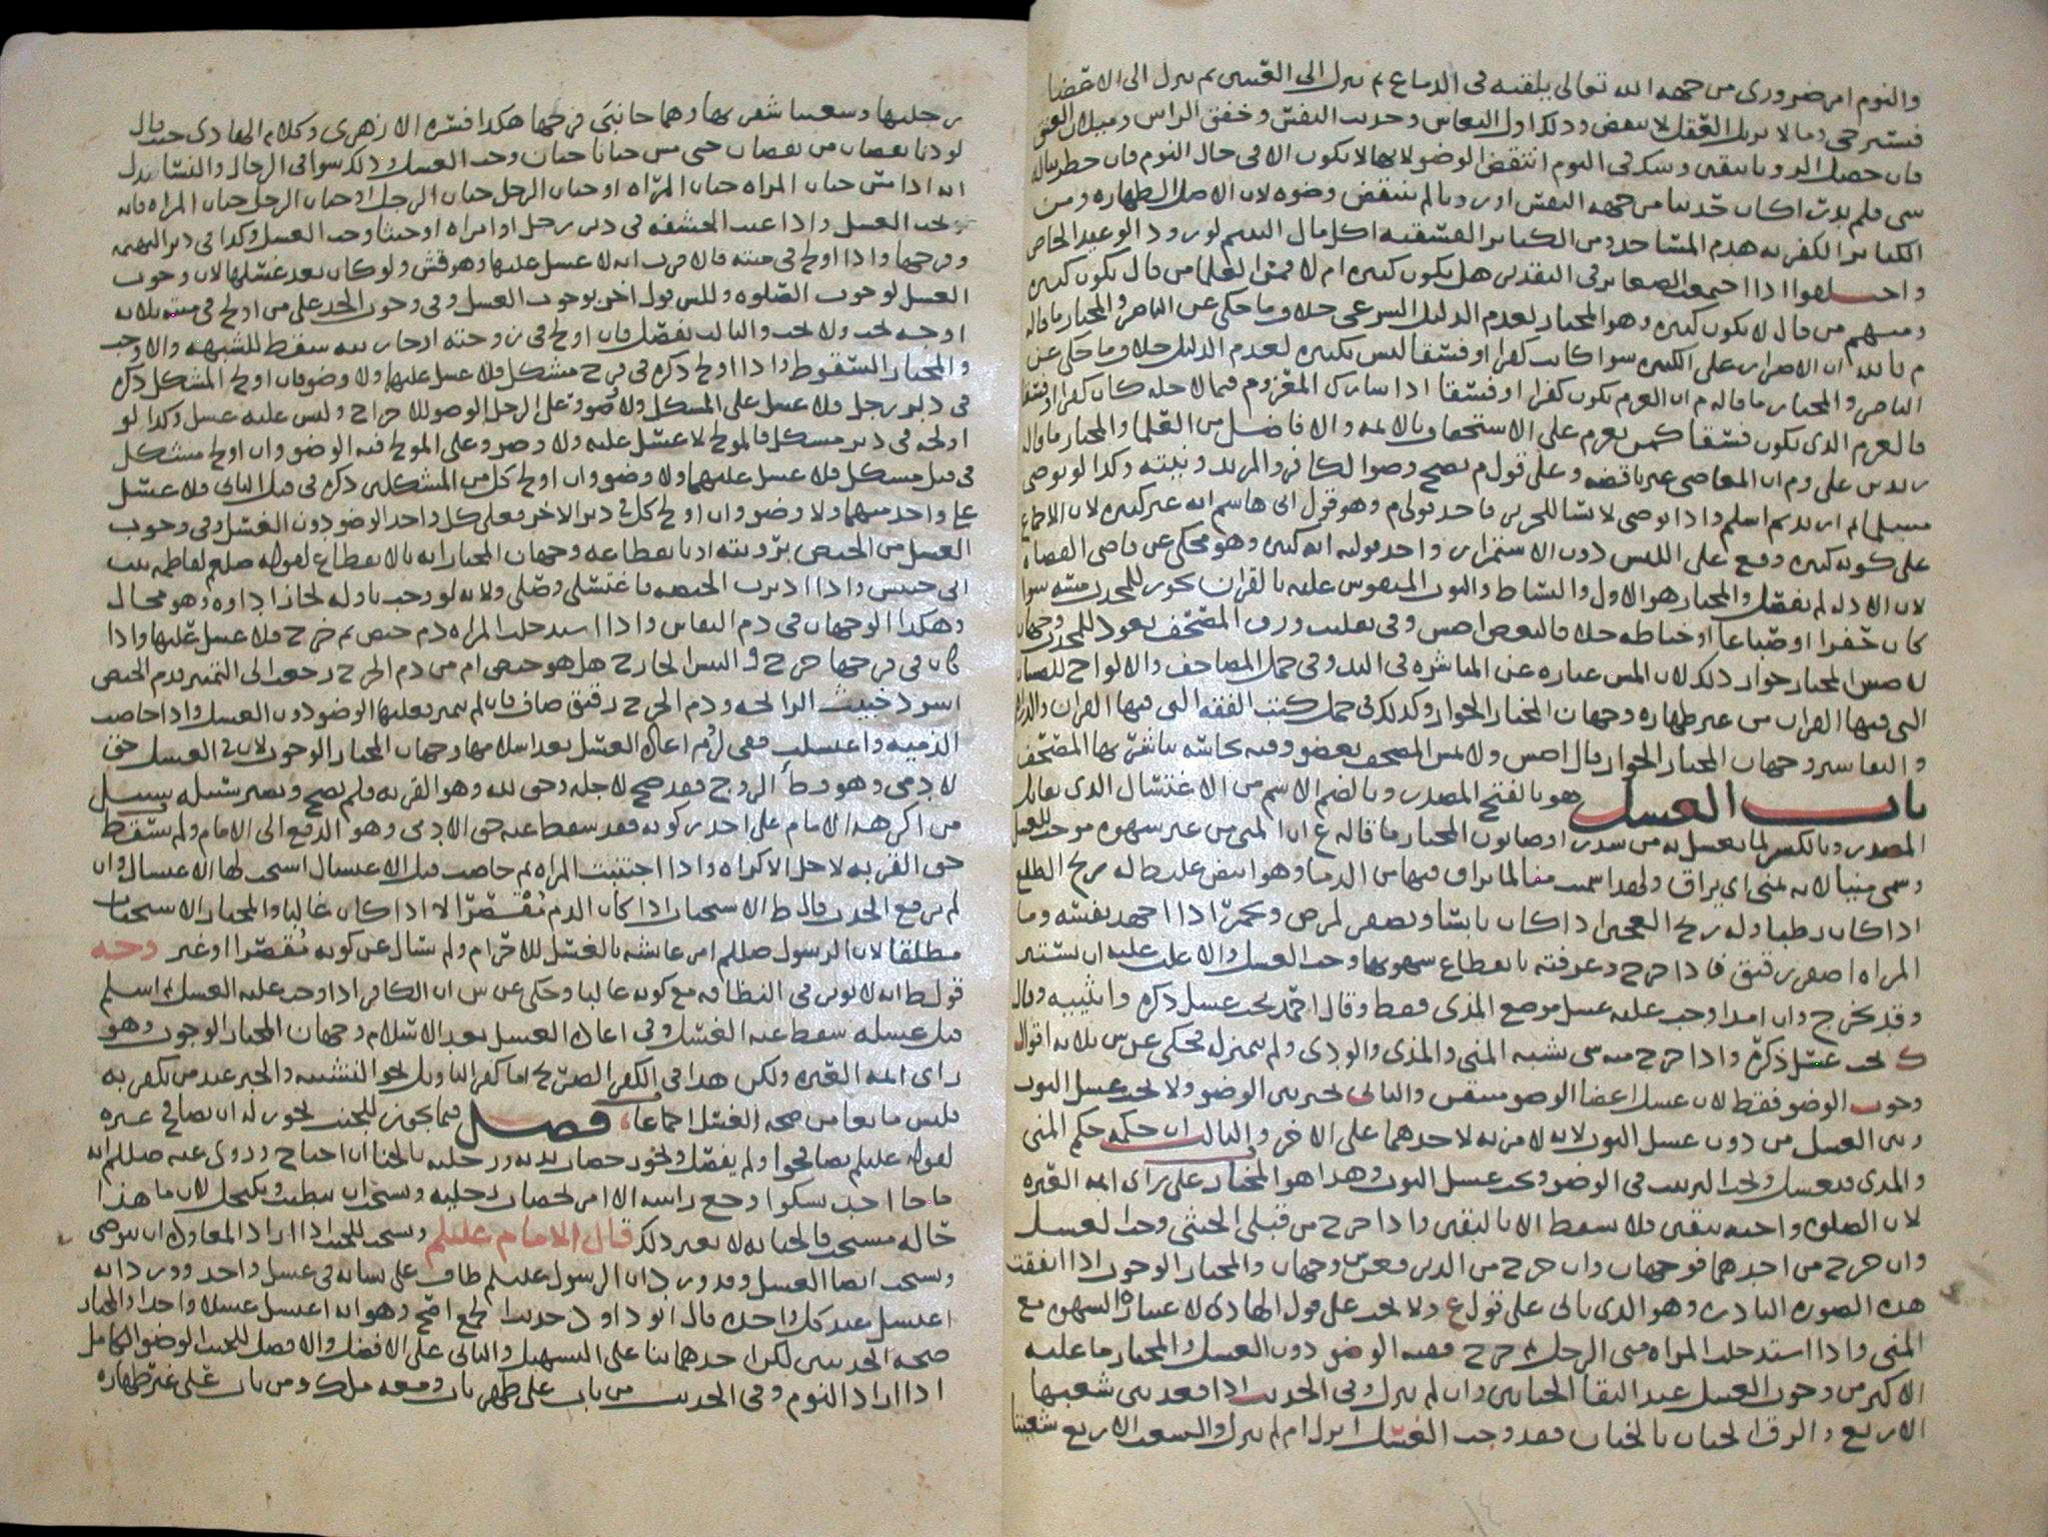 والنوم امر ضروري من جهه الله تعالى يلقيه في الدماغ ثم ينزل الى القلب ثم ينزل الى الاعضا
فتسترخي وما لا يزيل العقل لا ينقض وذلك اول النعاس وحديث النفس وخفق الراس وميلان العنق
فان حصل الرويا بيقين وشك في النوم انتقض الوضو لانها لا تكون الا في حال النوم فان خطر بباله
شي فلم يدر اكان حديثا من جهه النفس او رويا لم ينتقض وضوه لان الاصل الطهاره ومن
الكبائر الكفريه هدم المساجد ومن الكبائر الفسقيه اكل مال اليتيم لورود الوعيد الخاص
واختلفوا اذا اجتمعت الصغائر في التقدير هل يكون كبيره ام لا فمن العلما من قال يكون كبيره
ومنهم من قال لا يكون كبيره وهو المختار لعدم الدليل الشرعي خلاف ما حكي عن الناصر والمختار ما قاله
م بالله ان الاصرار على الكبيره سوا كانت كفرا او فسقا ليس بكبيره لعدم الدليل خلاف ما حكي عن
الناصر والمختار ما قاله م ان العزم يكون كفرا او فسقا اذا شارك المعزوم فيما لاجله كان كفرا او فسقا
فالعزم الذي يكون فسقا كمن يعزم على الاستخفاف بالائمه والافاضل من العلما والمختار ما قال
زيد بن علي وم ان المعاصي غير ناقضه وعلى قول م يصح وضو الكافر والمرتد ونيته وكذا لو توضى
مسلما ثم ارتد ثم اسلم واذا توضى لابسا للحرير فاحد قولي م وهو قول ابي هاشم انه غير كبيره لان الاجماع
على كونه كبيره وقع على اللبس دون الاستمرار واحد قوليه انه كبيره وهو محكي عن قاضي القضاه
لان الادله لم تفصل والمختار هو الاول والبساط والثوب المنقوش عليه بالقران يجوز للمحدث مسه سوا
كان حفرا او صباغا او خياطه خلاف البعض اصش وفي تقليب ورق المصحف بعود للمحدث وجهان
لاصش المختار جواز ذلك لان المس عباره عن المباشره في اليد وفي حمل المصاحف والالواح للصبيان
التي فيها القران من غير طهاره وجهان المختار الجواز وكذلك في حمل كتب الفقه التي فيها القران والدراهم
والتفاسير وجهان المختار الجواز قال اصش ولا يمس المصحف بعضو وفيه نجاسه يباشر بها المصحف
باب الغسل هو بالفتح المصدر وبالضم الاسم من الاغتسال الذي يقابل
المصدر وبالكسر لما يغسل به من سدر او صابون المختار ما قاله ع ان المني من غير شهوه موجب للغسل
وسمي منيا لانه يمنى اي يراق ولهذا سميت منا لما يراق فيها من الدما وهو ابيض غليظ له ريح الطلع
اذا كان رطبا وله ريح العجين اذا كان يابسا ويصفر لمرض ويحمر اذا اجهد نفسه وما
المراه اصفر رقيق فاذا خرج وعرفته بانقطاع شهوتها وجب الغسل والاغلب عليه ان يستتر
وقد يخرج وان امذا وجب عليه غسل موضع المذي فقط وقال احمد يجب غسل ذكره وانثييه وقال
ك يجب غسل ذكره واذا خرج منه شي يشبه المني والمذي والودي ولم يميزه فحكي عن ش ثلاثه اقوال
وجوب الوضو فقط لان غسل اعضا الوضو متيقن والثاني يخير بين الوضو ولا يجب غسل الثوب
وبين الغسل من دون غسل الثوب لانه لا مزيه لاحدهما على الاخر والثالث ان حكمه حكم المني
والمذي فيغسل ويجب الترتيب في الوضو ويجب غسل الثوب وهذا هو المختار على راي ائمه العتره
لان الصلوه واجبه بيقين فلا تسقط الا باليقين واذا خرج من قبلي الخنثى وجب الغسل
وان خرج من احدهما فوجهان وان خرج من الدبر فعن ش وجهان والمختار الوجوب اذا اتفقت
هذه الصوره النادره وهو الذي ياتي على قول ع ولا يجب على قول الهادي لاعتباره الشهوه مع
المني واذا استدخلت المراه مني الرجل ثم خرج ففيه الوضو دون الغسل والمختار ما عليه
الاكثر من وجوب الغسل عند التقا الختانين وان لم ينزل وفي الحديث اذا قعد بين شعبها
الاربع والزق الختان بالختان فقد وجب الغسل انزل ام لم ينزل والشعب الاربع شعبتا
رجليها وشعبتا شفريها وهما جانبي فرجها هكذا فسره الازهري وكلام الهادي حيث قال
لو دنا بعضا من بعضا حتى مس ختانا ختان وجب الغسل وذلك سوا في الرجال والنسا يدل
انه اذا مس ختان المراه ختان المراه او ختان الرجل ختان الرجل او ختان الرجل ختان المراه فانه
يجب الغسل واذا غيب الحشفه في دبر رجل او امراه او خنثا وجب الغسل وكذا في دبر البهيمه
وفرجها واذا اولج في ميته فالاقرب انه لا غسل عليها وهو قش ولو كان بعد غسلها لان وجوب
الغسل لوجوب الصلوه وللش قول اخر بوجوب الغسل وفي وجوب الحد على من اولج في ميته ثلاثه
اوجه يجب ولا يجب والثالث يفصل فان اولج في زوجته او جاريته سقط للشبهه والا وجب
والمختار السقوط واذا اولج ذكره في فرج مشكل فلا غسل عليهما ولا وضو فان اولج المشكل ذكره
في دبر رجل فلا غسل على المشكل ولا وضو وعلى الرجل الوضو للاخراج وليس عليه غسل وكذا لو
اولجه في دبر مشكل فالمولج لا غسل عليه ولا وضو وعلى المولج فيه الوضو وان اولج مشكل
في قبل مشكل فلا غسل عليهما ولا وضو وان اولج كل من المشكلين ذكره في قبل الثاني فلا غسل
على واحد منهما ولا وضو وان اولج كل في دبر الاخر فعلى كل واحد الوضو دون الغسل وفي وجوب
الغسل من الحيض برويته او بانقطاعه وجهان المختار انه بالانقطاع لقوله صلعم لفاطمه بنت
ابي حبيش واذا ادبرت الحيضه فاغتسلي وصلي ولانه لو وجب باوله لجاز اداوه وهو محال
وهكذا الوجهان في دم النفاس واذا استدخلت المراه دم حيض ثم خرج فلا غسل عليها واذا
كان في فرجها جرح والتبس الخارج هل هو حيض ام من دم الجرح رجعت الى التمييز فدم الحيض
اسود خبيث الرائحه ودم الجرح رقيق صاف فان لم يميز فعليها الوضو دون الغسل واذا حاضت
الذميه واغتسلت ففي لزوم اعاده الغسل بعد اسلامها وجهان المختار الوجوب لان في الغسل حق
لادمي وهو وطا الزوج فقد صح لاجله وحق لله وهو القربه فلم يصح ويصير سبيله سبيل
من اكرهه الامام على اخذ زكوته فقد سقط عنه حق الادمي وهو الدفع الى الامام ولم يسقط
حق القربه لاجل الاكراه واذا اجتنبت المراه ثم حاضت قبل الاغتسال استحب لها الاغتسال وان
لم يرفع الحدث قال ط الاستحباب اذا كان الدم مقصرا لا اذا كان غالبا والمختار الاستحباب
مطلقا لان الرسول صللم امر عائشه بالغسل للاحرام ولم يسال عن كونه مقصرا او غير وجه
قول ط انه لا يوثر في النظافه مع كونه غالبا وحكي عن ش ان الكافر اذا وجب عليه الغسل ثم اسلم
قبل غسله سقط عنه الغسل وفي اعاده الغسل بعد الاسلام وجهان المختار الوجوب وهو
راي ائمه العتره ولكن هذا في الكفر الصريح اما كفر التاويل نحو التشبيه والجبر عند من يكفر به
فليس مانعا من صحه الغسل اجماعا، فصل فيما يجوز للجنب يجوز له ان يصافح غيره
لقوله عليلم تصافحوا ولم يفصل ويجوز خضاب يديه ورجليه بالحنا ان احتاج وروي عنه صللم انه
ما جا احد شكوا وجع راسه الا امر بخضاب رجليه ويستحب ان يتطيب ويكتحل لان ما هذا
حاله مستحب فالجنابه لا تغير ذلك قال الامام عليلم ويستحب للجنب اذا اراد المعاوده ان يتوضى
ويستحب ايضا الغسل وقد ورد ان الرسول عليلم طاف على نسائه في غسل واحد وورد انه
اغتسل عند كل واحده قال ابو داود حديث الجمع اصح وهو انه اغتسل غسلا واحدا والمختار
صحه الحديثين لكن احدهما بنا على التسهيل والثاني على الافضل والافضل للجنب الوضو الكامل
اذا اراد النوم وفي الحديث من بات على طهر بات ومعه ملك ومن بات على غير طهاره